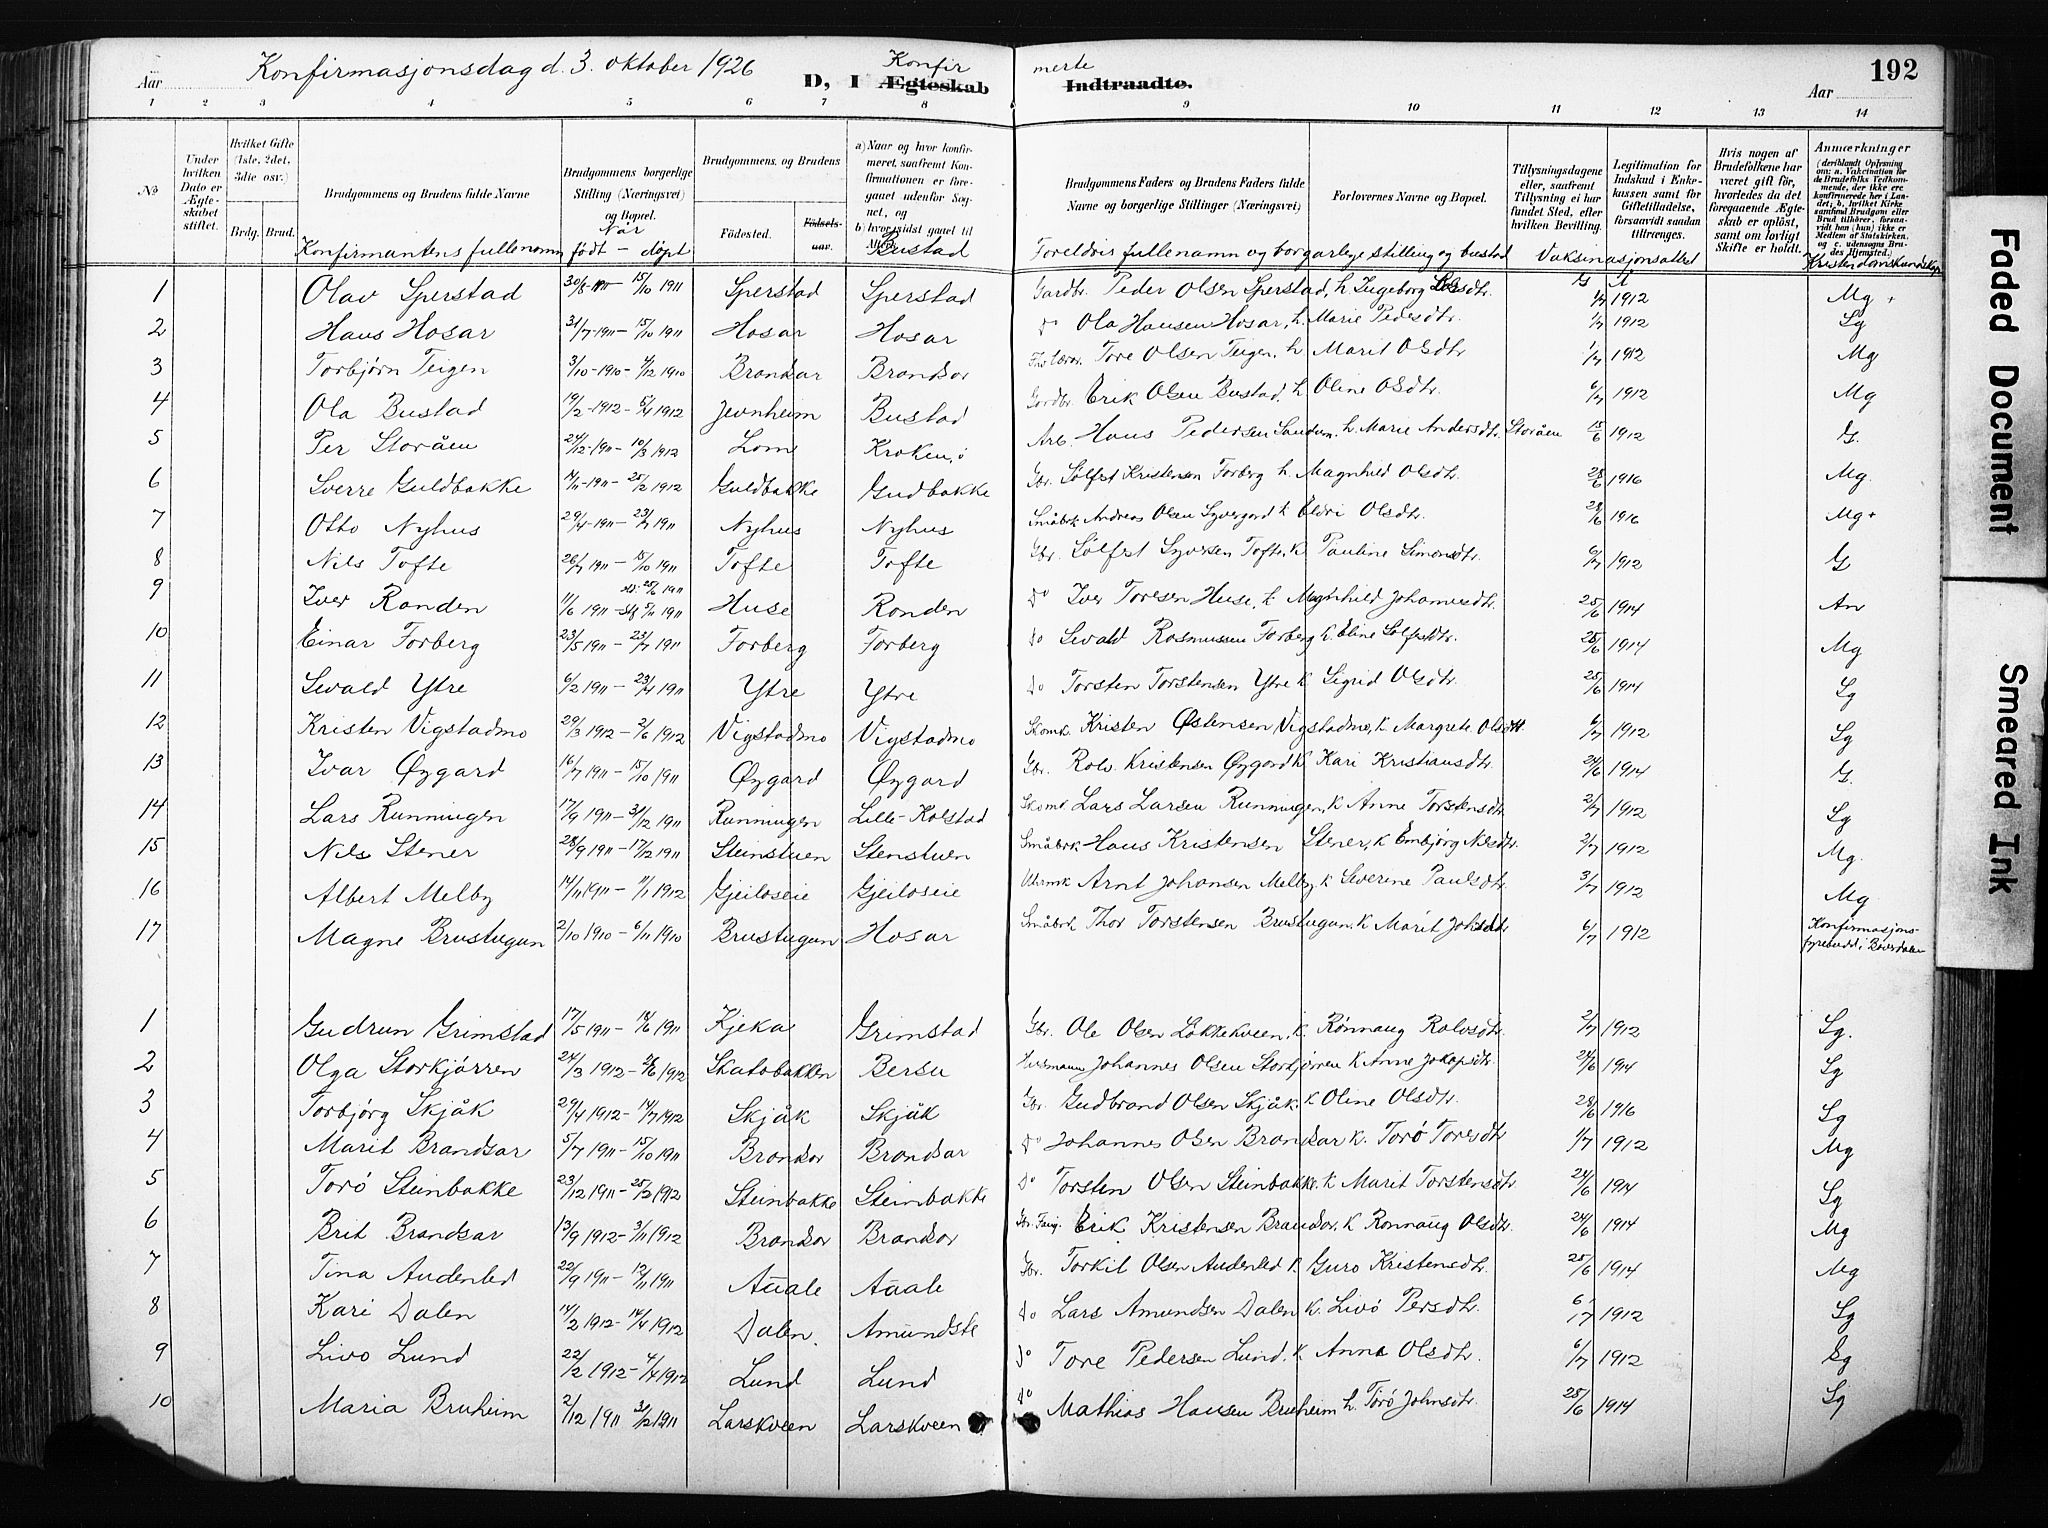 Konfirmasjonsdag d. 3. oktober 1926
Aar
D, I Ægteskab Indtraadte.
Konfir merte
Aar
192
1 2 3 4 5 6 7 8 9 10 11 12 13 14
№
Under hvilken Dato er Ægteskabet stiftet.
Hvilket Gifte (1ste, 2det, 3die osv.)
Brdg. Brud.
Brudgommens og Brudens fulde Navne
Konfirmantens fulle namn
Brudgommens borgerlige Stilling (Næringsvei) og Bopæl.
Når født – døpt
Brudgommens og Brudens
Fødested.
Fødselsaar.
a) Naar og hvor konfirmeret, saafremt Konfirmationen er foregaaet udenfor Sognet, og
b) hvor sidst gaaet til Alters.
Bustad
Brudgommens Faders og Brudens Faders fulde Navne og borgerlige Stillinger (Næringsvei)
Forlovernes Navne og Bopæl.
Foreldris fulle namn og borgarlege stilling og bustad
Tillysningsdagene eller, saafremt Tillysning ei har fundet Sted, efter hvilken Bevilling.
Legitimation for Indskud i Enkekassen samt for Giftetilladelse, forsaavidt saadan tiltrænges.
Vaksinasjonsattest
Hvis nogen af Brudefolkene har været gift før, hvorledes da det foregaaende Ægteskab er opløst, samt om lovligt Skifte er holdt.
Anmærkninger
(deriblandt Oplysning om: a. Vakcination for de Brudefolks Vedkommende, der ikke ere konfirmerede her i Landet; b. hvilket Kirkesamfund Brudgom eller Brud tilhører, forsaavidt han (hun) ikke er Medlem af Statskirken, og c. udensogns Brudes Hjemsted.)
Kristendomskunnskap
1 Olav Sperstad 30/8 1911 – 15/10 1911 Sperstad Sperstad Gardbr. Peder Olsen Sperstad, h. Ingeborg 1/7 1912 Mg +
2 Hans Hosar 31/7 1911 – 15/10 1911 Hosar Hosar do Ola Hansen Hosar, h. Marie Pedesdtr. 1/7 1912 Sg
3 Torbjørn Teigen 3/10 – 1910 – 4/12 1910 Brandsar Brandsar Tore Olsen Teigen, h. Marit Olsdtr 1/7 1912 Mg
4 Ola Bustad 19/2 – 1912 – 5/4 1912 Jevnheim Bustad Gardbr. Erik Olsen Bustad, h. Oline Olsdtr. 6/7 1912 Mg
5 Per Storåen 24/12 – 1911 – 10/3 1912 Lom Kroken Arb. Hans Pedersen Sandum. h. Marie Andersdtr. Storåen 15/6 1912 G.
6 Sverre Guldbakke 14/11 – 1911 – 25/2 1912 Guldbakke Gudbakke Gbr. Sølfest Kristensen Forberg h. Magnhild Olsdtr. 28/6 1916 Mg.
7 Otto Nyhus 29/4 – 1911 – 23/7 1911 Nyhus Nyhus Småbrk Andreas Olsen Syvergard k. Eldri Olsdtr. 28/6 1916 Mg +
8 Nils Tofte 26/7 1911 – 15/10 1911 Tofte Tofte Gbr. Sølfest Syversen Tofte, k. Pauline Simensdtr. 6/7 1912 G
9 Iver Randen 11/6 1911 – 5/11 1911 Huse Randen do Iver Toresen Huse, k. Magnhild Johannesdtr. 25/6 1914 An
10 Einar Forberg 23/5 1911 – 23/7 1911 Forberg Forberg do Sevald Rasmussen Forberg k. Eline Sølfestdtr. 25/6 1914 Mg
11 Sevald Ytre 6/2 1911 – 23/4 1911 Ytre Ytre do Torsten Torstensen Ytre k. Sigrid Olsdtr. 25/6 1914 Sg
12 Kristen Vigstadmo 29/3 1912 – 2/6 1912 Vigstadmo Vigstadmo Skomk. Kristen Østensen Vigstadmo, k. Margrete Olsdtr. 6/7 1912 Sg
13 Ivar Øygard 16/7 1911 – 15/10 1911 Øygard Øygard Gbr. Rolv Kristensen Øygard k. Kari Kristiansdtr. 24/6 1914 G.
14 Lars Runningen 17/9 1911 – 31/12 1911 Runningen Lille-Kolstad Skomk Lars Larsen Runningen, k. Anne Torstensdtr. 2/7 1912 Sg
15 Nils Stener 28/9 1911 – 17/12 1911 Steinstuen Stenstuen Småbrk Hans Kristensen Stener, k. Embjørg Nilsdtr. 2/7 1912 Mg.
16 Albert Melby 14/11 1911 – 11/1 1912 Gjeiloseie Gjeiloseie Uhrmk Arnt Johansen Melby k. Severine Paulsdtr. 3/7 1912 Mg
17 Magne Brustugun 2/10 1910 – 6/11 1910 Brustugun Hosar Småbrk Thor Torstensen Brustugun. k. Marit Johsdtr 6/7 1912 Konfirmasjonsfyrebudd i Bøverdalen
1 Gudrun Grimstad 17/5 1911 – 18/6 1911 Kjeka Grimstad Gbr. Ole Olsen Løkkekveen, k. Rønnaug Rolvsdtr. 2/7 1912 Sg.
2 Olga Storkjørren 24/3 1912 – 26/6 1912 Skatobakken Bersu Husmann Johannes Olsen Storkjørren k. Anne Jakopsdtr. 24/6 1914 Sg
3 Torbjørg Skjåk 29/4 1912 – 14/7 1912 Skjåk Skjåk Gbr. Gudbrand Olsen Skjåk. k. Oline Olsdtr. 28/6 1916 Sg
4 Marit Brandsar 5/7 1911 – 15/10 1911 Brandsar Brandsar do Johannes Olsen Brandsar k. Torø Toresdtr 1/7 1912 Mg
5 Torø Steinbakke 23/12 1911 – 25/2 1912 Steinbakke Steinbakke do Torsten Olsen Steinbakke. k. Marit Torstensdtr. 24/6 1914 Sg
6 Brit Brandsar 13/9 1912 – 3/11 1912 Brandsar Brandsar Erik Kristensen Brandsar. k. Rønnaug Olsdtr. 24/6 1914 Mg
7 Tina Audenled 22/9 1911 – 12/11 1911 Aaale Aaale Gbr. Torkil Olsen Audenled k. Guro Kristensdtr. 25/6 1914 Mg
8 Kari Dalen 14/2 1912 – 14/4 1912 Dalen Amundste do Lars Amundsen Dalen k. Livø Persdtr. 6/7 1912 Sg
9 Livø Lund 22/2 1912 – 4/4 1912 Lund Lund do Tore Pedersen Lund. k. Anna Olsdtr. 6/7 1912 Sg
10 Maria Bruheim 2/12 1911 – 31/12 1911 Larskveen Larskveen do Mathias Hansen Brueheim h. Torø Johnsdtr. 25/6 1914 Sg
Faded Document
Smeared Ink